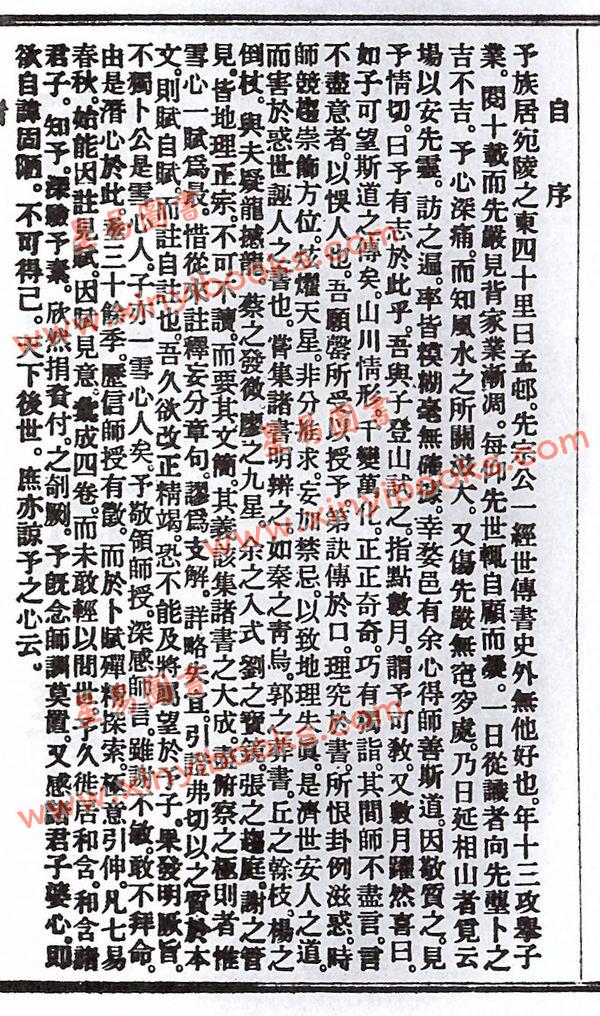 自序
予族居宛陵之東四十里曰孟邨。先宗公一經世傳書史外無他好也。年十三攻舉子
業。閱十載而先嚴見背家業漸凋。每仰先世輒自顧而凝。一日從識者向先壟卜之
吉不吉。予心深痛。而知風水之所關滋大。又傷先嚴無窀穸處。乃日延相山者覓云
場以安先靈。訪之遍。率皆模糊毫無確。幸婺邑有余心得師善斯道。因敬質之。見
予情切。曰予有志於此乎。吾與子登山試之。指點數月。謂予可教。又數月躍然喜曰。
如子可望斯道之傳矣。山川情形。千變萬化。正正奇奇。巧有詣。其間師不盡言。言
不盡意者。以悞人也。吾願罄所受以授予。第訣傳於口。理究於書。所恨卦例滋惑。時
師競趨崇飾方位。炫燿天星。非分求。妄加禁忌。以致地理失眞。是濟世安人之道。
而害於惑世誣人之書也。嘗集諸書明辨之。如秦之靑烏。郭之葬書。丘之榦枝。楊之
倒杖。與夫疑龍撼龍。蔡之發微。廖之九星。余之入式。劉之寶。張之趨庭。謝之管
見。皆地理正宗。不可不讀。而要其文簡。其義該集諸書之大成。俯察之極則者。惟
雪心一賦爲最。惜從來註釋妄分章句。謬爲支解。詳略失宜。引證弗切以之質於本
文。則賦自賦。而註自註也。吾久欲改正精竭。恐不能及將屬望於子。子果發明厥旨。
不獨卜公是雪心人。子亦一雪心人矣。予敬領師授。深感師言。雖謝不敏。敢不拜命。
由是潛心於此三十餘季。歷信師授有徵。而於卜賦殫精探索。極意引伸。凡七易
春秋。始能因註見賦。因賦見意。彙成四卷。而未敢輕以問世。予久徙居和含。和含諸
君子。知予深。驗予素。欣然捐資付之剞劂。予旣念師訓莫置。又感諸君子婆心。即
欲自諱固陋。不可得已。天下後世。庶亦諒予之心云。
星易圖書
www.xinyibooks.com
星易圖書
www.xinyibooks.com
星易圖書
www.xinyibooks.com
星易圖書
www.xinyibooks.com